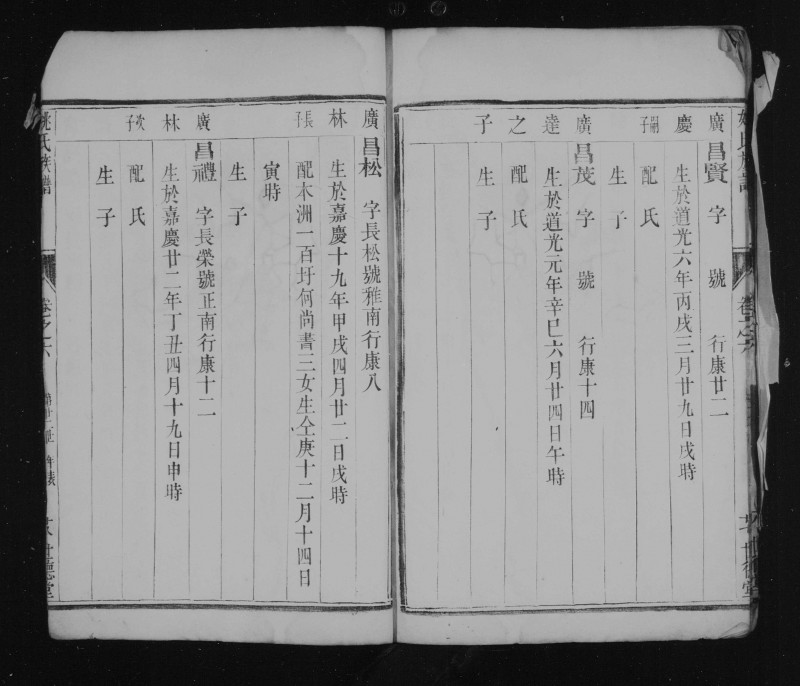 廣昌賢 字 號 行康廿二
慶 生於道光六年丙戌三月廿九日戌時
嗣子 配氏
生子
廣昌茂 字 號 行康十四
達 生於道光元年辛巳六月廿四日午時
之 配氏
子 生子
廣昌松 字長松號雅南行康八
林 生於嘉慶十九年甲戌四月廿二日戌時
長子 配木洲一百圩何尚書三女生仝庚十二月十四日
寅時
生子
廣昌禮 字長榮號正南行康十二
林 生於嘉慶廿二年丁丑四月十九日申時
次子 配氏
生子
姚氏族譜 卷之六 世德堂